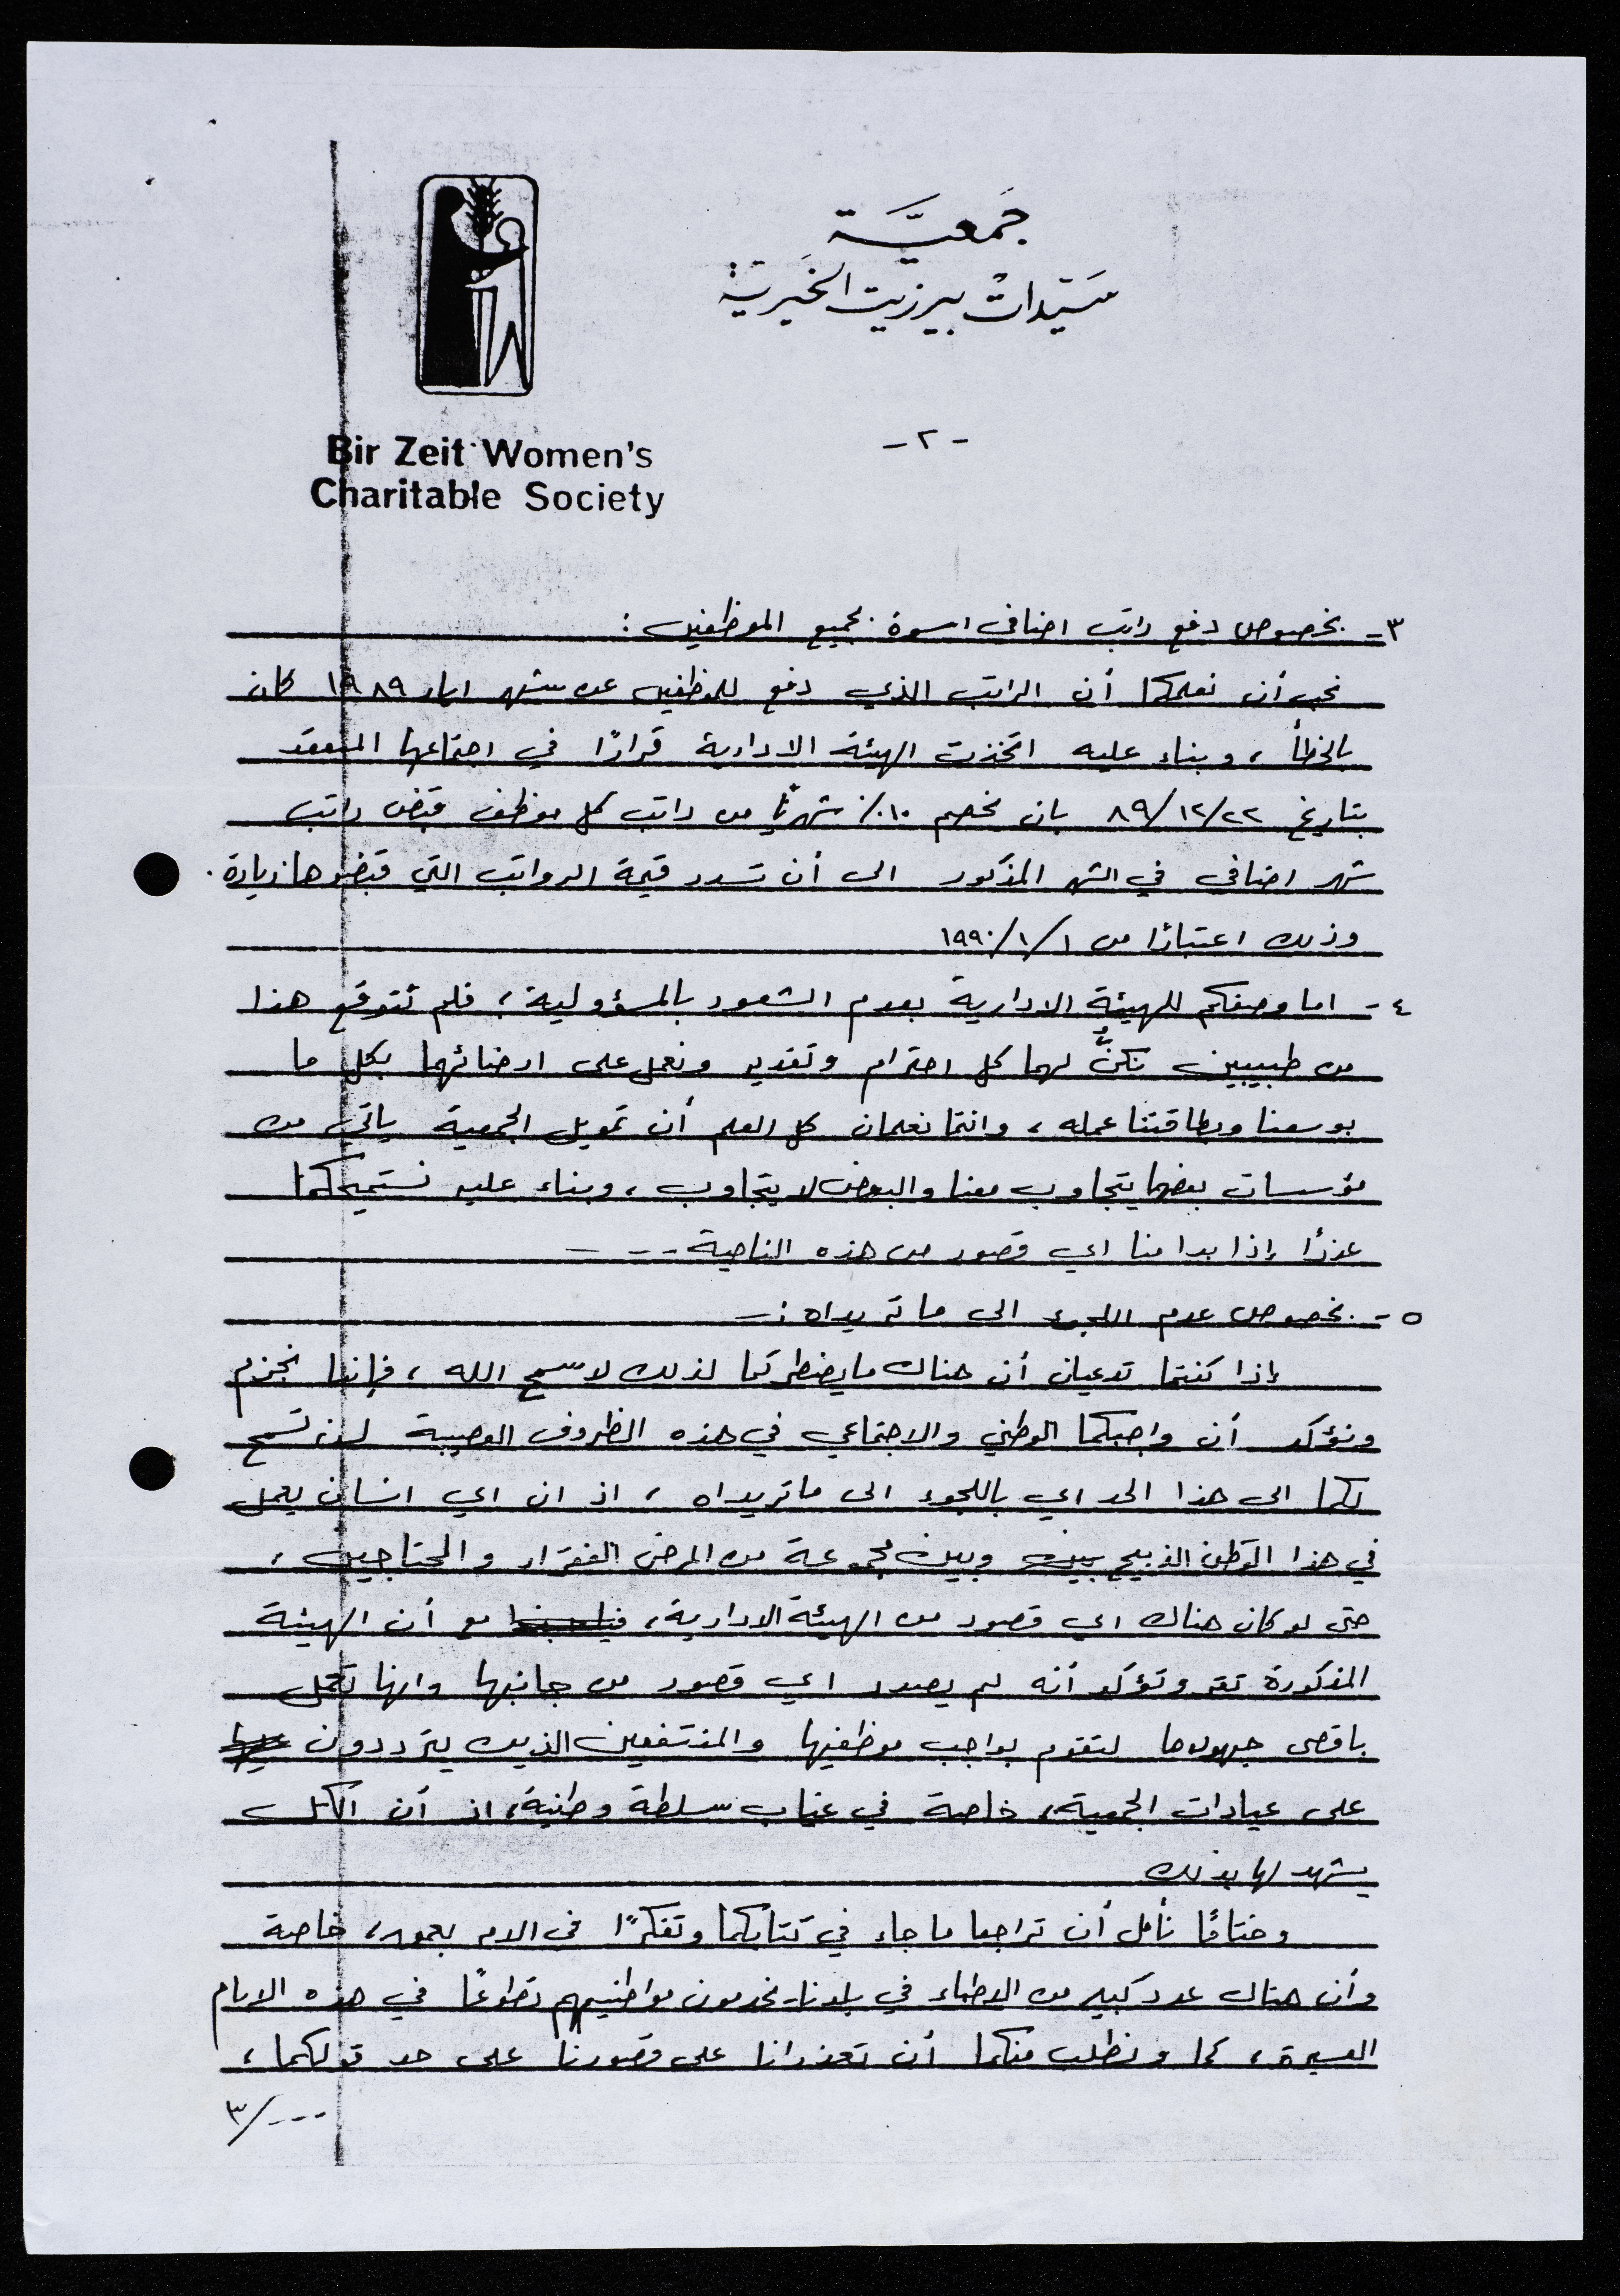 جمعية
سيدات بيرزيت الخيرية
Bir Zeit Women's
Charitable Society
- ٢ -
٣- بخصوص دفع راتب اضافي اسوة بجميع الموظفين :
نحب أن نعلمكما أن الراتب الذي دفع للموظفين عن شهر ايار ١٩٨٩ كان
بالخطأ ، وبناء عليه اتخذت الهيئة الادارية قرارًا في اجتماعها المنعقد
بتاريخ ٨٩/١٢/٢٢ بان نخصم ١٠٪ شهريًا من راتب كل موظف قبض راتب
شهر اضافي في الشهر المذكور الى أن تسدد قيمة الرواتب التي قبضوها زيادة .
وذلك اعتبارًا من ١٩٩٠/١/١
٤ - اما وصفكم للهيئة الادارية بعدم الشعور بالمسؤولية ، فلم نتوقع هذا
من طبيبين نكنُّ لهما كل احترام وتقدير ونعمل على ارضائهما بكل ما
بوسعنا وبطاقتنا عمله ، وانتما تعلمان كل العلم أن تمويل الجمعية ياتي من
مؤسسات بعضها يتجاوب معنا والبعض لا يتجاوب ، وبناء عليه نستميحكما
عذرًا إذا بدا منا اي قصور من هذه الناحية ---
٥ - بخصوص عدم اللجوء الى ما تريداه :-
إذا كنتما تدعيان أن هناك ما يضطركما لذلك لا سمح الله ، فإننا نجزم
ونؤكد أن واجبكما الوطني والاجتماعي في هذه الظروف العصيبة لن تسمح
لكما الى هذا الحد اي باللجوء الى ما تريداه ، اذ ان اي انسان يعمل
في هذا الوطن الذبيح بينه وبين مجموعة من المرضى الفقراء والمحتاجين ،
حتى لو كان هناك اي قصور من الهيئة الادارية ، مع أن الهيئة
المذكورة تقر وتؤكد أنه لم يصدر اي قصور من جانبها وانها تعمل
باقصى جهودها لتقوم بواجب موظفيها والمنتفعين الذين يترددون عليها
على عيادات الجمعية ، خاصة في غياب سلطة وطنية ، اذ أن الكل
يشهد لها بذلك
وختامًا نأمل أن تراجعا ما جاء في كتابكما وتفكرًا في الامر بعمق ، خاصة
وأن هناك عدد كبير من الاطباء في بلدنا يخدمون مواطنيهم تطوعًا في هذه الايام
العسيرة ، كما ونطلب منكما أن تعذرانا على قصورنا على حد قولكما ،
٣/---